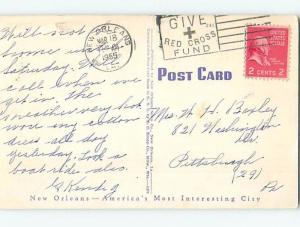 We'll not
home until
Saturday. Will
call when we
get in. The
weather very hot
wore my cotton
dress all day
yesterday. Took a
boat ride also.
G. Kendig
NEW ORLEANS
MAR 18
1955
GIVE
RED CROSS
FUND
2 CENTS 2
POST CARD
Mrs. W. H. Bagley
821 Washington
Dr.
Pittsburgh
(29)
Pa
New Orleans—America's Most Interesting City